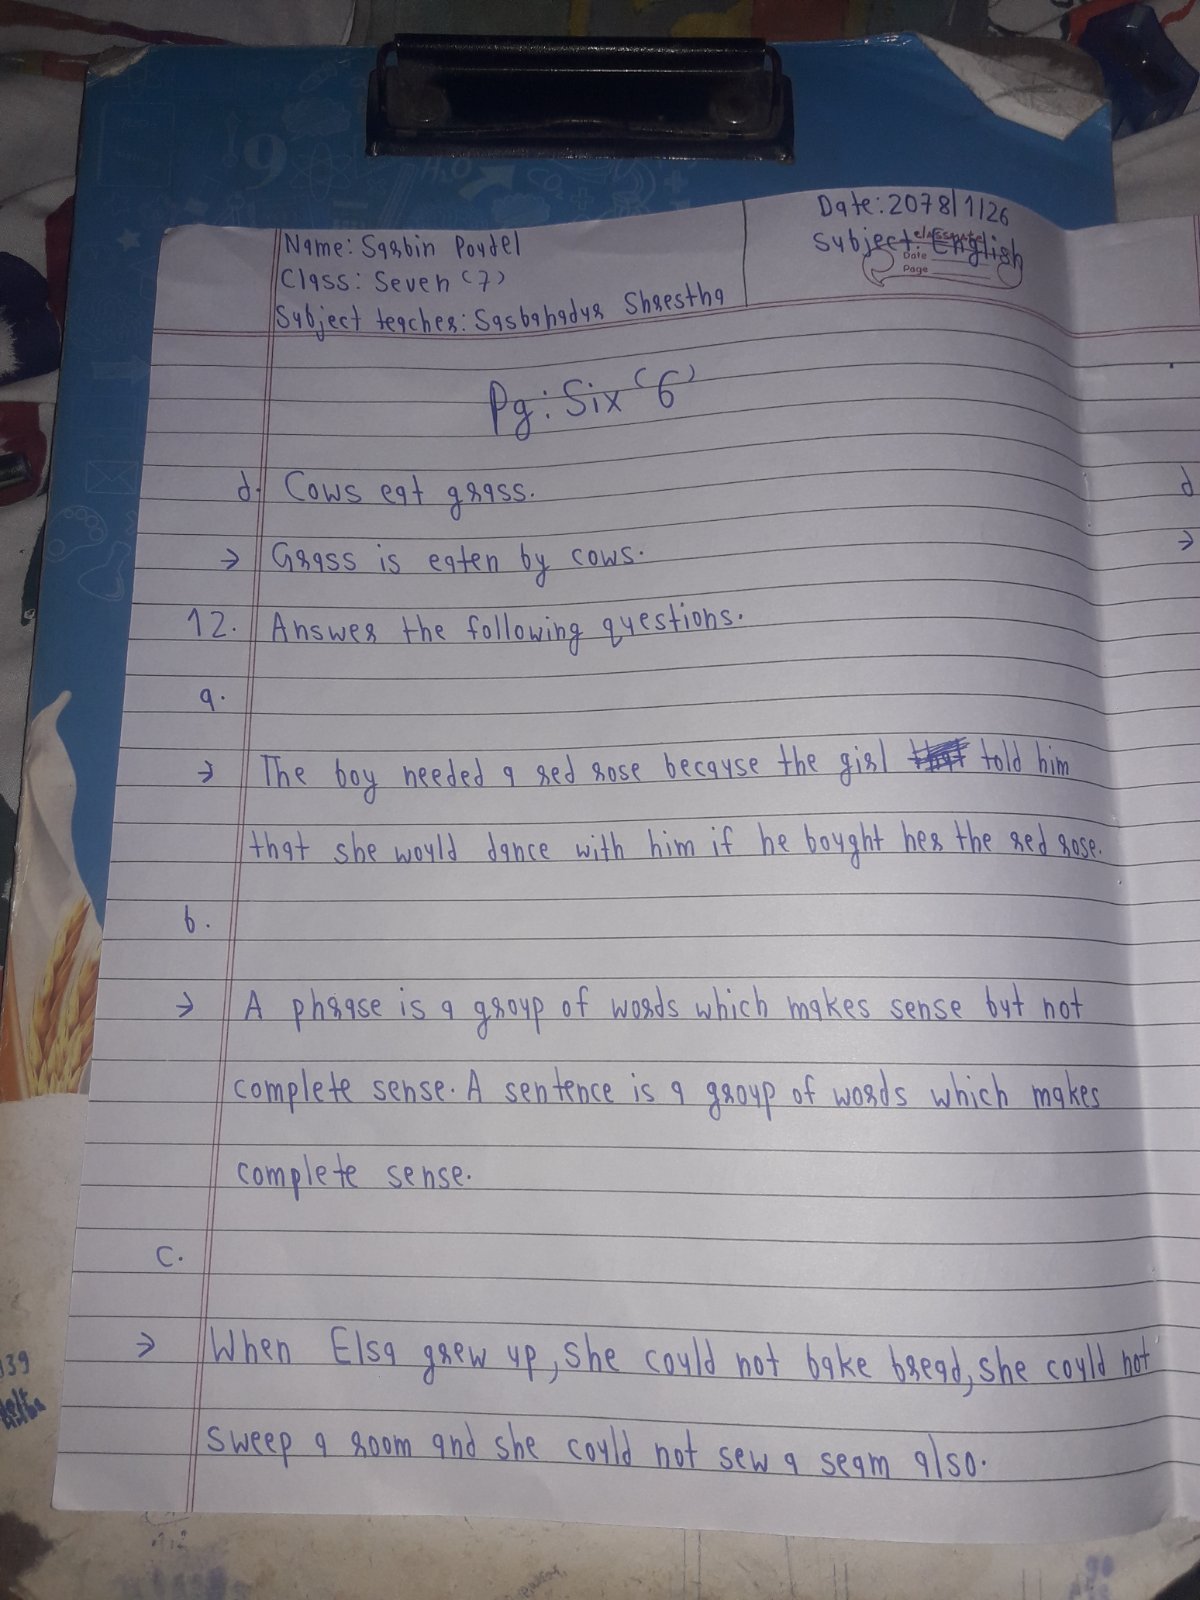 Name: Sarbin Poudel
Class: Seven (7)
Subject teacher: Sasbahadur Shrestha
Date: 2078/1/26
Subject: English
classmate
Date
Page
Pg: Six (6)
d. Cows eat grass.
→ Grass is eaten by cows.
12. Answer the following questions.
a.
→ The boy needed a red rose because the girl told him
that she would dance with him if he bought her the red rose.
b.
→ A phrase is a group of words which makes sense but not
complete sense. A sentence is a group of words which makes
complete sense.
c.
→ When Elsa grew up, she could not bake bread, she could not
sweep a room and she could not sew a seam also.
d
→
139
9
H₂O
CO₂